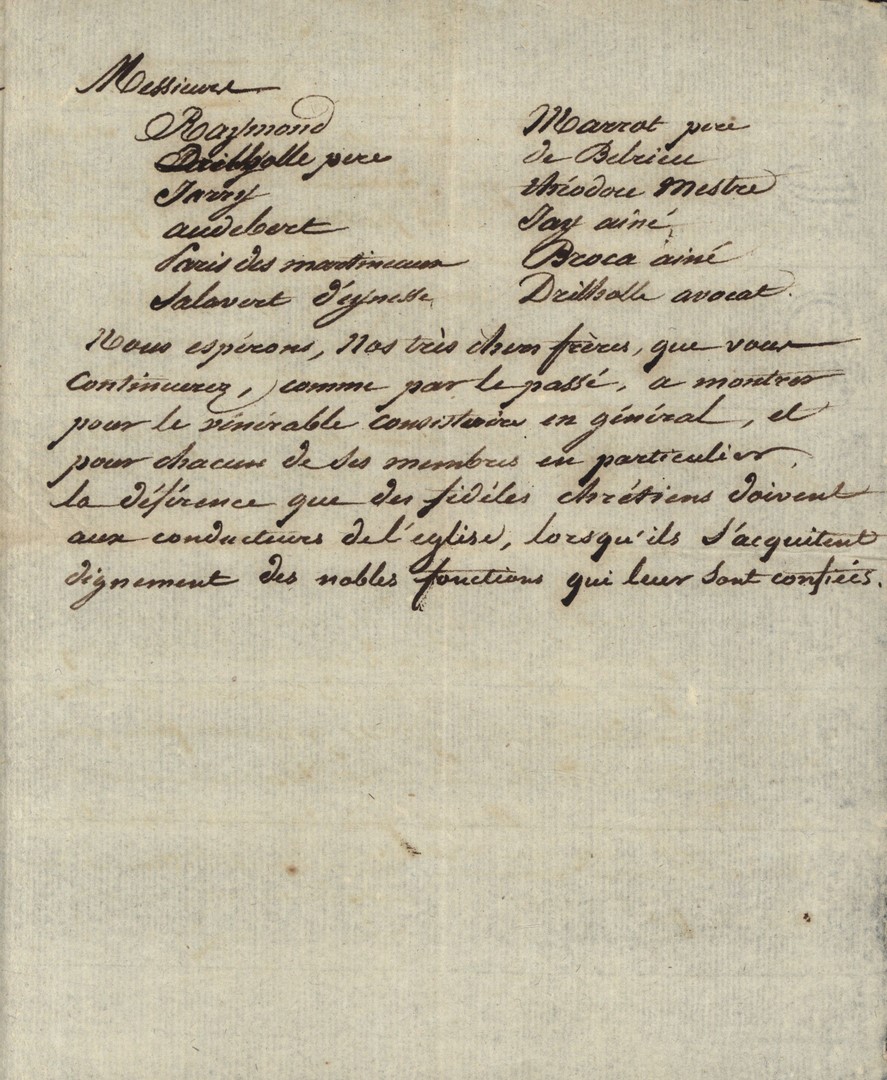 Messieurs
Raymond
Drilholle pere
Jarry
audebert
Paris des martineaux
Salavert d'eynesse
Marrot pere
de Belrieu
théodore Mestre
Jay ainé
Broca ainé
Drilholle avocat.
Nous espérons, Nos très chers frères, que vous
continuerez, comme par le passé, a montrer
pour le vénérable consistoire en général, et
pour chacun de ses membres en particulier,
la déférence que des fidéles chrétiens doivent
aux conducteurs de l'eglise, lorsqu'ils s'acquitent
dignement des nobles fonctions qui leur sont confiées.